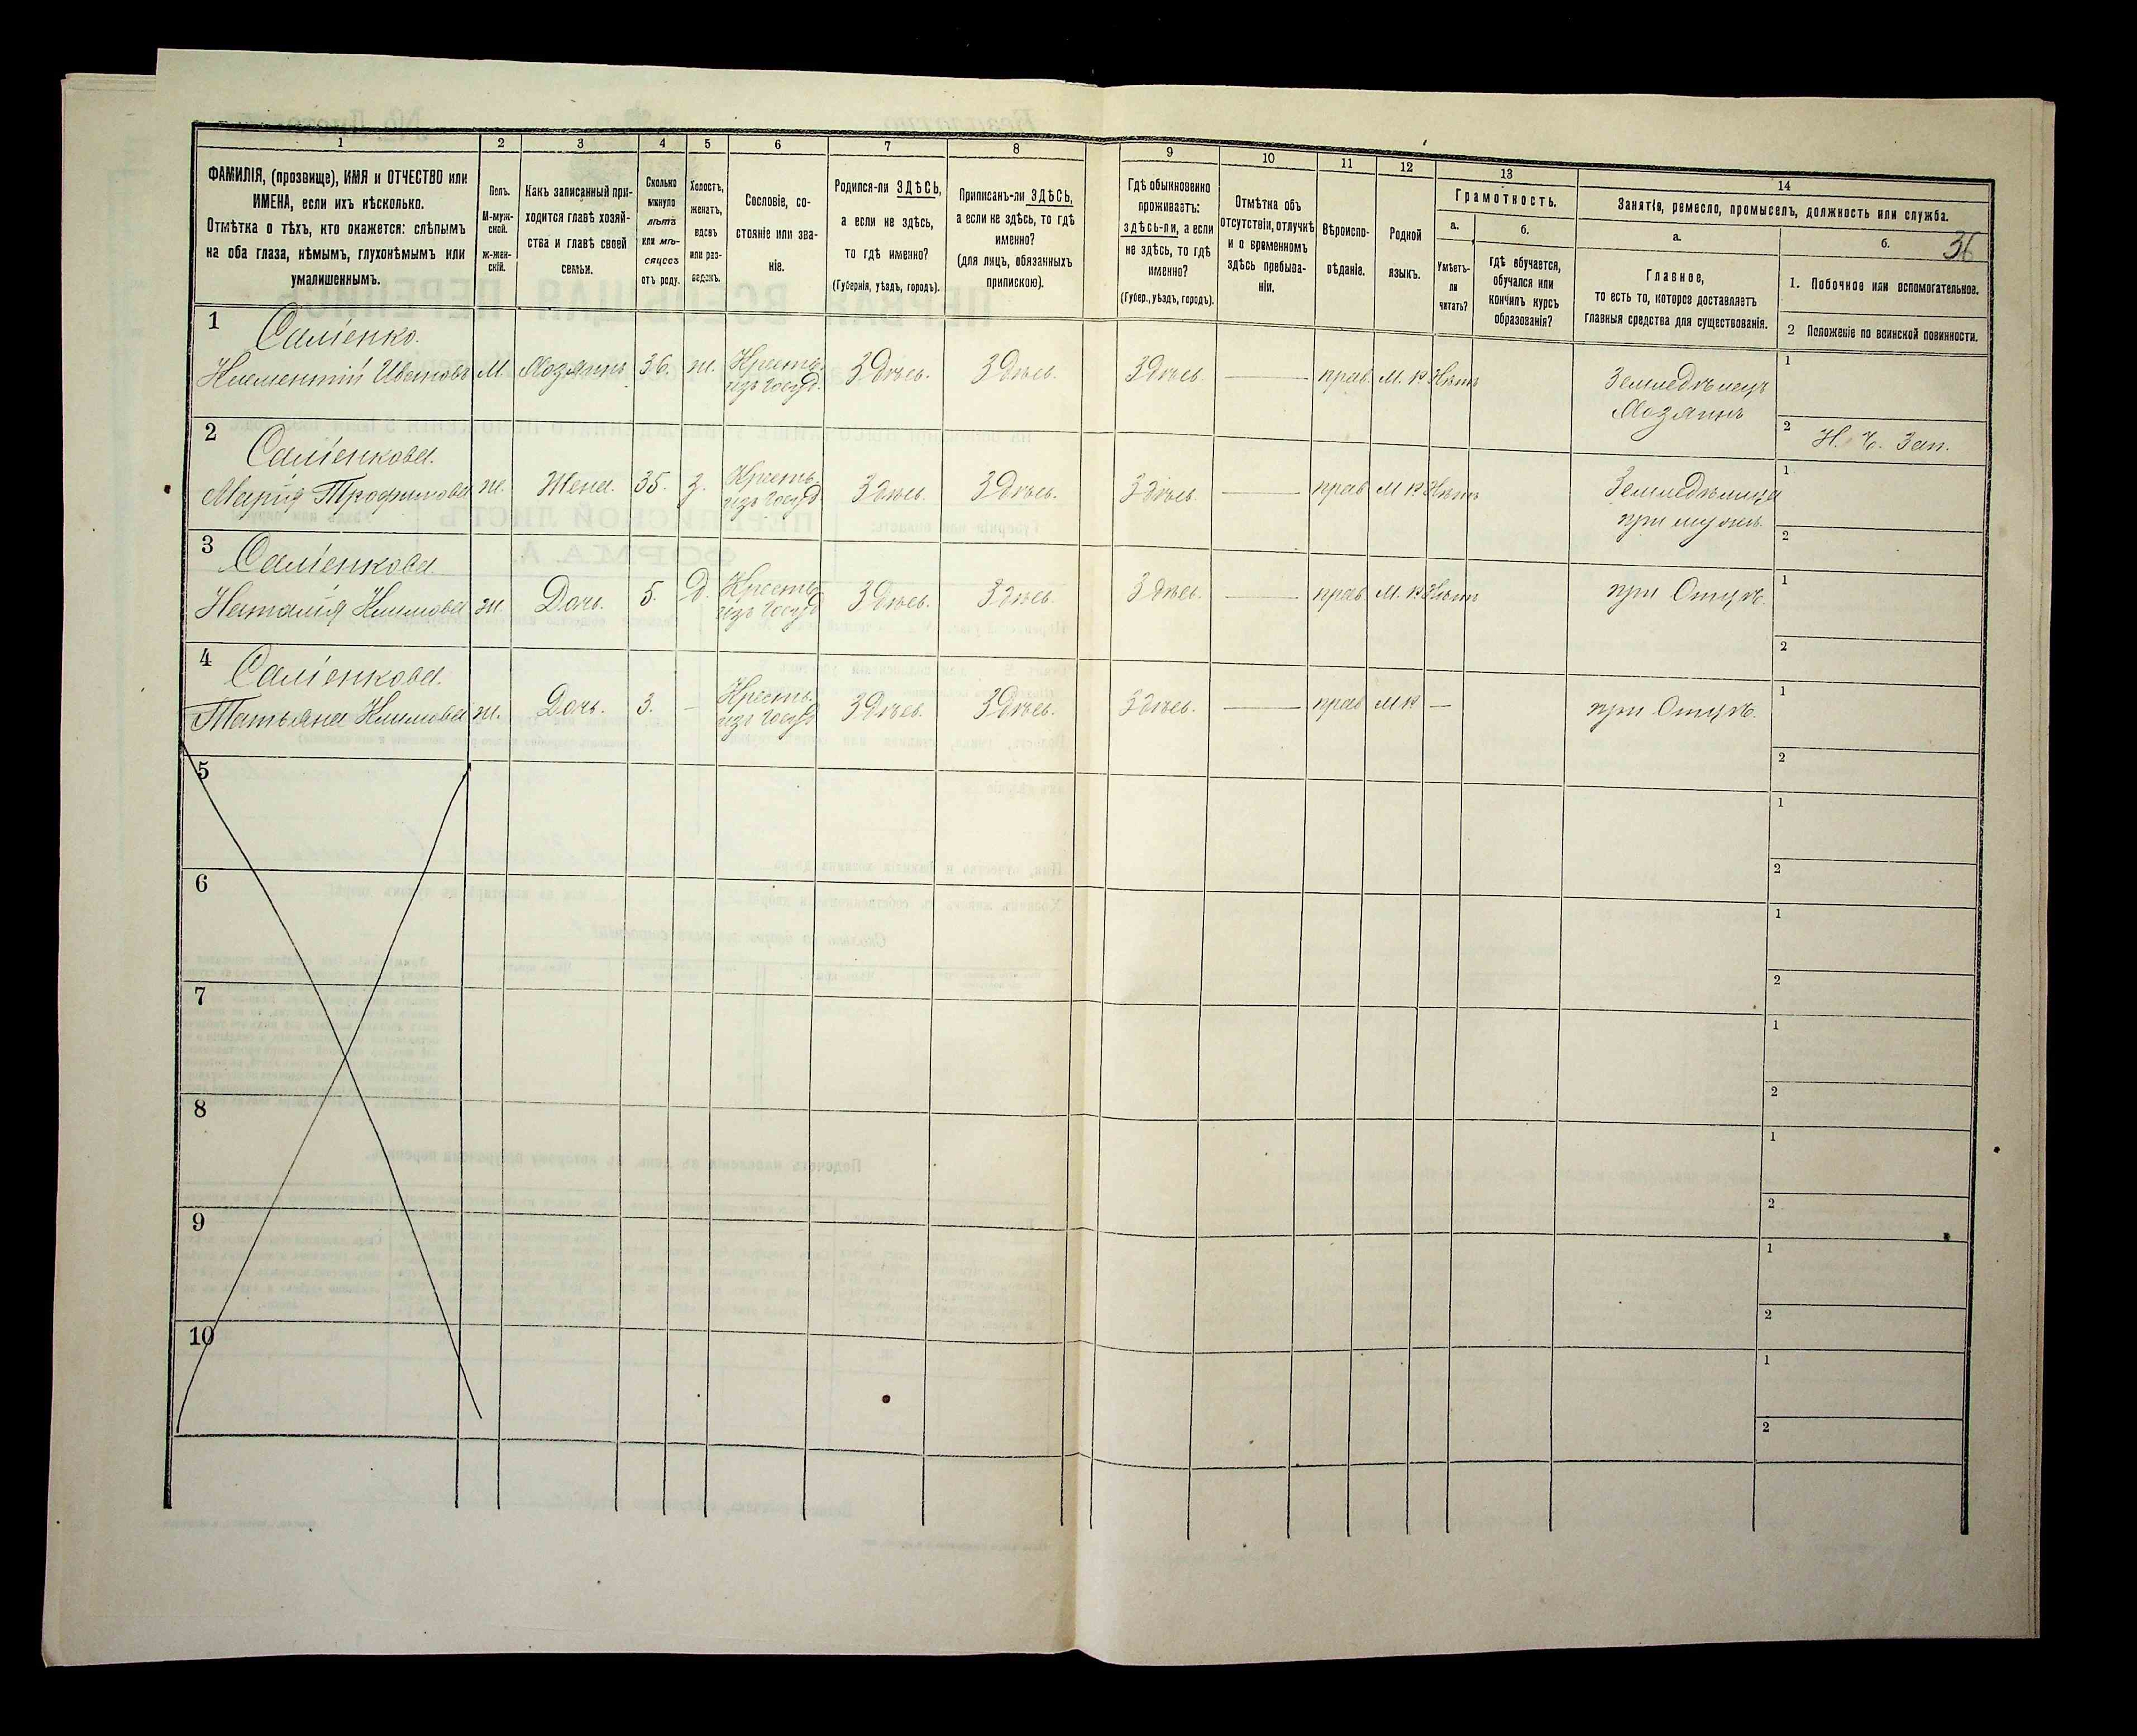 36
1 2 3 4 5 6 7 8 9 10 11 12 13 14
ФАМИЛІЯ, (прозвище), ИМЯ и ОТЧЕСТВО или
ИМЕНА, если ихъ нѣсколько.
Отмѣтка о тѣхъ, кто окажется: слѣпымъ
на оба глаза, нѣмымъ, глухонѣмымъ или
умалишеннымъ.
Полъ.
М-муж-
ской.
ж-жен-
скій.
Какъ записанный при-
ходится главѣ хозяй-
ства и главѣ своей
семьи.
Сколько
минуло
лѣтъ
или мѣ-
сяцевъ
отъ роду.
Холостъ,
женатъ,
вдовъ
или раз-
веденъ.
Сословіе, со-
стояніе или зва-
ніе.
Родился-ли ЗДѢСЬ,
а если не здѣсь,
то гдѣ именно?
(Губернія, уѣздъ, городъ).
Приписанъ-ли ЗДѢСЬ,
а если не здѣсь, то гдѣ
именно?
(для лицъ, обязанныхъ
припискою).
Гдѣ обыкновенно
проживаетъ:
здѣсь-ли, а если
не здѣсь, то гдѣ
именно?
(Губер., уѣздъ, городъ).
Отмѣтка объ
отсутствіи, отлучкѣ
и о временномъ
здѣсь пребыва-
ніи.
Вѣроиспо-
вѣданіе.
Родной
языкъ.
Грамотность.
а.
Умѣетъ-
ли
читать?
б.
гдѣ обучается,
обучался или
кончилъ курсъ
образованія?
Занятіе, ремесло, промыселъ, должность или служба.
а.
Главное,
то есть то, которое доставляетъ
главныя средства для существованія.
б.
1. Побочное или вспомогательное.
2 Положеніе по воинской повинности.
1 Саліенко.
Климентій Ивановъ М. Хозяинъ 36. ж. Крестьян. изъ Госуд. Здѣсь. Здѣсь. Здѣсь. — прав. М. р. Нѣтъ
1 Земледѣлецъ
Хозяинъ
2 Н. Ч. Зап.
2 Саліенкова.
Марія Трофимова ж. Жена. 35. з. Крестьян. изъ Госуд. Здѣсь. Здѣсь. Здѣсь. — прав М р Нѣтъ
1 Земледѣлица
при мужѣ.
2
3 Саліенкова.
Наталія Климова ж. Дочь. 5. Д. Крестьян. изъ Госуд Здѣсь. Здѣсь Здѣсь. — прав М. р. Нѣтъ
1 при Отцѣ.
2
4 Саліенкова.
Татьяна Климова ж. Дочь. 3. — Крестьян. изъ Госуд Здѣсь. Здѣсь. Здѣсь. — прав М р —
1 при Отцѣ.
2
5 1
2
6 1
2
7 1
2
8 1
2
9 1
2
10 1
2